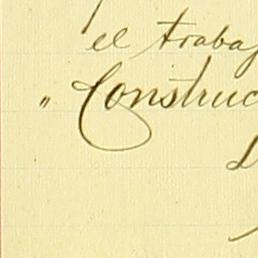 el trabaj
" Construc